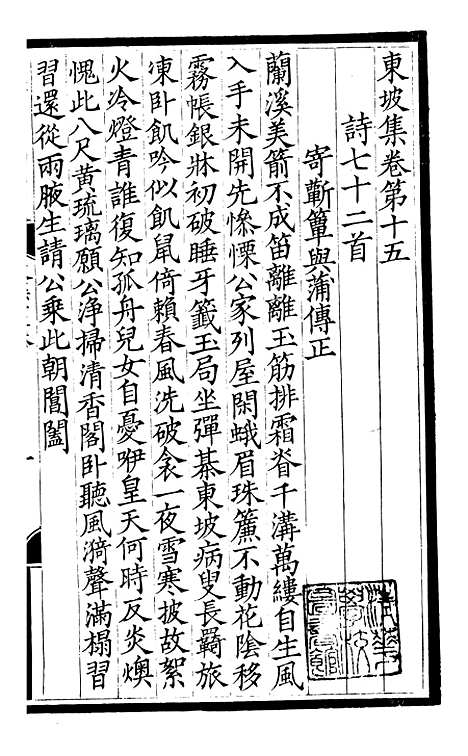 東坡集卷第十五
詩七十二首
寄蘄簟與蒲傳正
蘭溪美箭不成笛離離玉筋排霜脊千溝萬縷自生風
入手未開先慘慄公家列屋閑蛾眉珠簾不動花陰移
霧帳銀牀初破睡牙籤玉局坐彈棊東坡病叟長羇旅
凍卧飢吟似飢鼠倚賴春風洗破衾一夜雪寒披故絮
火冷燈青誰復知孤舟兒女自憂咿皇天何時反炎燠
愧此八尺黃琉璃願公淨掃清香閣卧聽風漪聲滿榻習
習還從兩腋生請公乘此朝閶闔